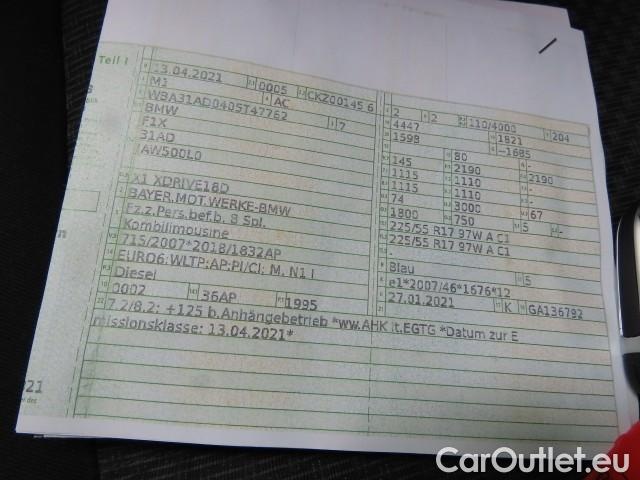 Teil I
13.04.2021 0005 CKZ00145 6
M1 AC
WBA31AD0405T47762 7
BMW
F1X
31AD
IAW500L0
X1 XDRIVE18D
BAYER.MOT.WERKE-BMW
Fz.z.Pers.bef.b. 8 Spl.
Kombilimousine
715/2007*2018/1832AP
EURO6;WLTP;AP;PI/CI; M, N1 I
Diesel
0002 36AP 1995
7.2/8.2: +125 b.Anhängebetrieb *ww.AHK lt.EGTG *Datum zur E
missionsklasse: 13.04.2021*
2 2 110/4000 204
4447 1821
1598 -1685
80 -
145 2190 2190
1115 1110 -
1115 1110 -
74 3000 67
1800 750 5 -
225/55 R17 97W A C1
225/55 R17 97W A C1
-
Blau 5
e1*2007/46*1676*12
27.01.2021 K GA136792
21
CarOutlet.eu